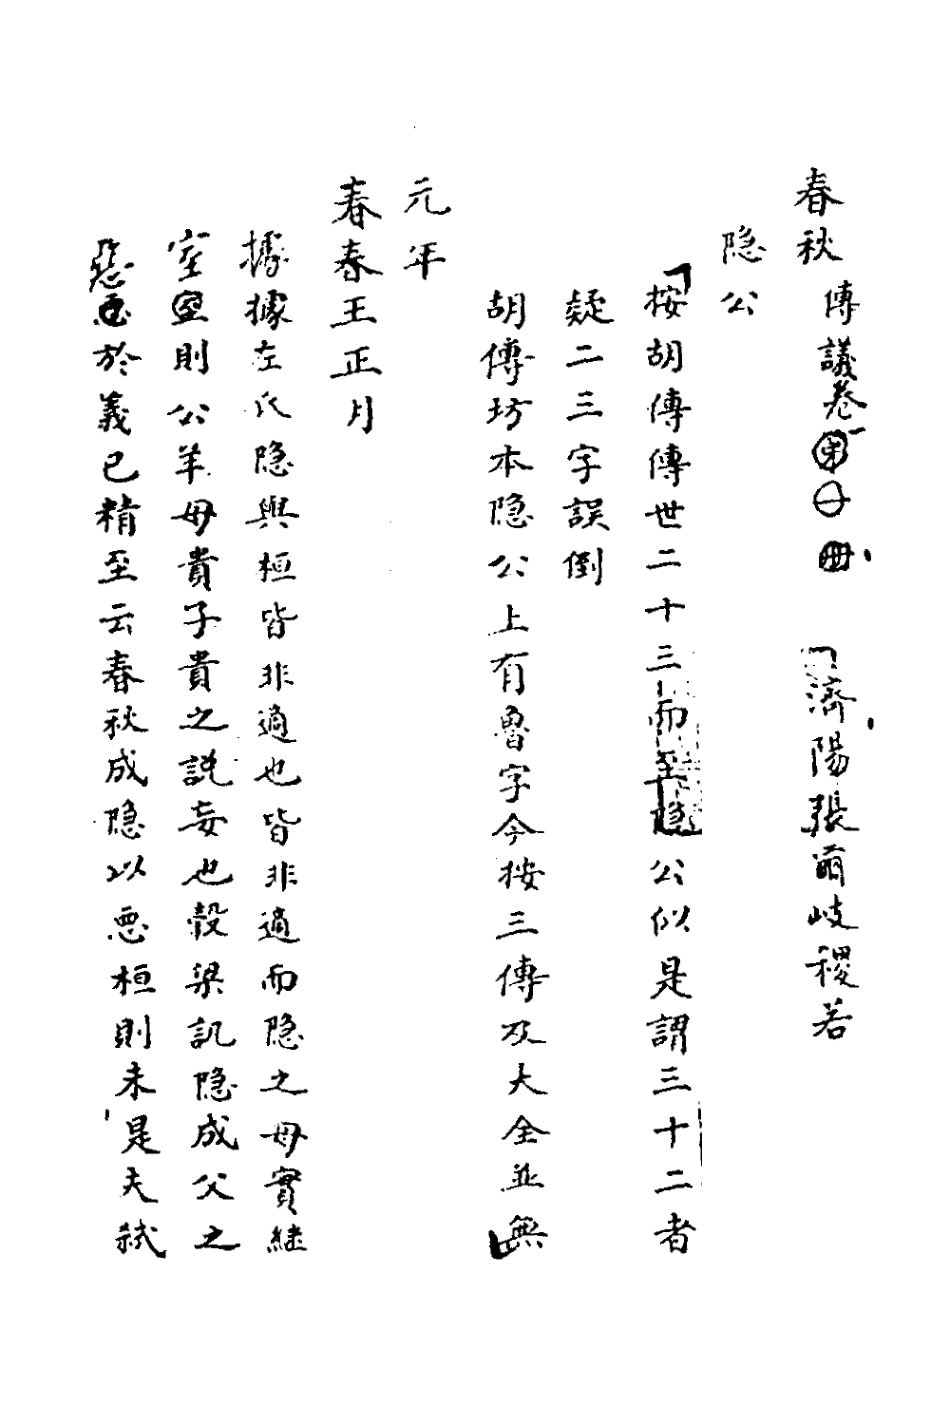 春秋傳議卷第一冊 濟陽張爾岐稷若
隐公
按胡傳傳世二十三而至隐公似是謂三十二者
疑二三字誤倒
胡傳坊本隐公上有魯字今按三傳及大全並無
元年
春春王正月
據據左氏隐與桓皆非適也皆非適而隐之母實継
室室則公羊母貴子貴之説妄也榖梁訊隐成父之
惡惡於義已精至云春秋成隐以惡桓則未是夫弑